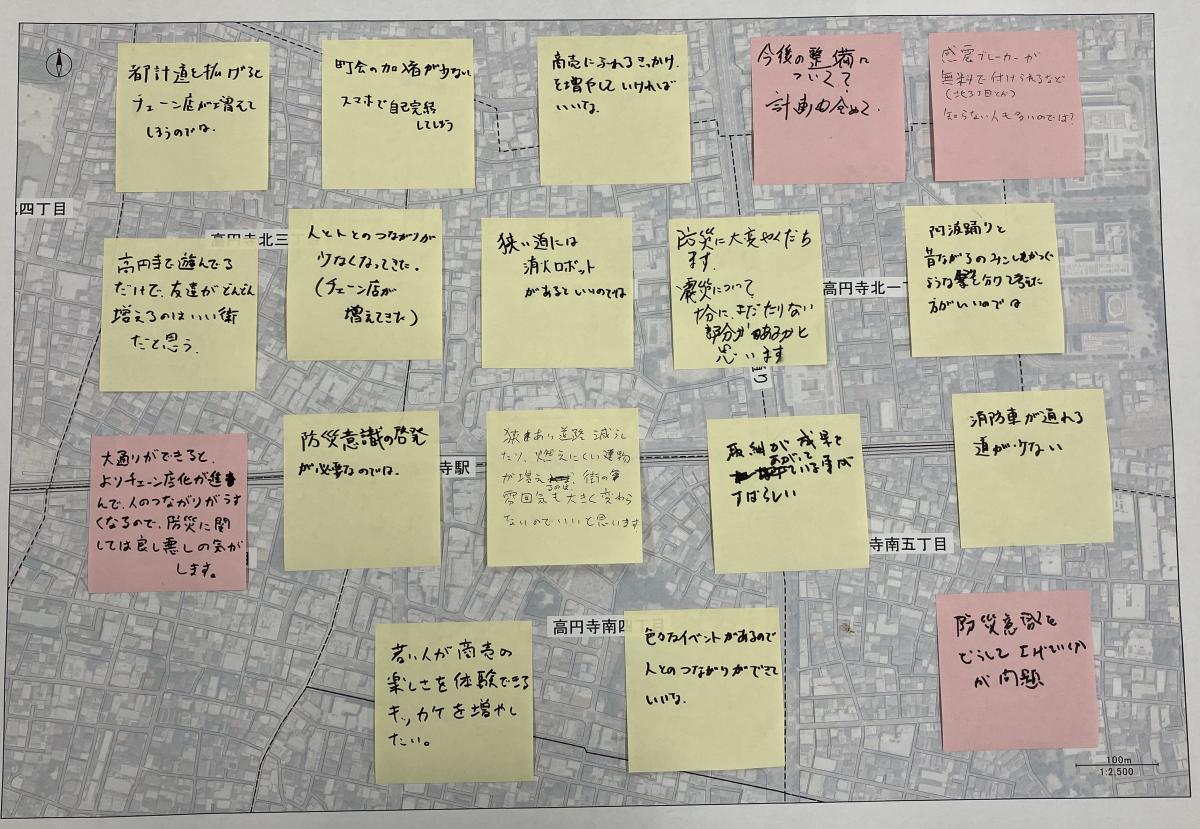 N
都計道を拡げると
チェーン店が増えて
しまうのでは。
町会の加入者が少ない
スマホで自己完結
してしまう
商売にふれるきっかけ
を増やしていければ
いいな。
今後の整備に
ついて
計画も含めて
感震ブレーカーが
無料で付けられるなど
知らない人も多いのでは?
四丁目
高円寺北三丁
高円寺で遊んでる
だけで、友達がどんどん
増えるのはいい街
だと思う。
人と人とのつながりが
少なくなってきた。
(チェーン店が
増えてきた)
狭い道には
消火ロボット
があるといいのでは
防災に大変やくだち
ます。
震災について
十分に、まだたりない
部分があるかと
思います
高円寺北一丁
阿波踊りと
昔ながらのみこしをかつぐ
ような祭を分けて考えた
方がいいのでは
大通りができると、
よりチェーン店化が進
んで、人のつながりがうす
くなるので、防災に関
しては良し悪しの気が
します。
防災意識の啓発
が必要なのでは。
寺駅
道路減らし
たり、燃えにくい建物
が増えるのは、街の
雰囲気も大きく変わら
ないのでいいと思います
取組が成果を
あがって
ている事が
すばらしい
消防車が通れる
道が少ない
寺南五丁目
高円寺南四丁目
若い人が商売の
楽しさを体験できる
キッカケを増やし
たい。
色々なイベントがあるので
人とのつながりができて
いいな。
防災意識を
どうして上げていくか
が問題
100m
1:2,500